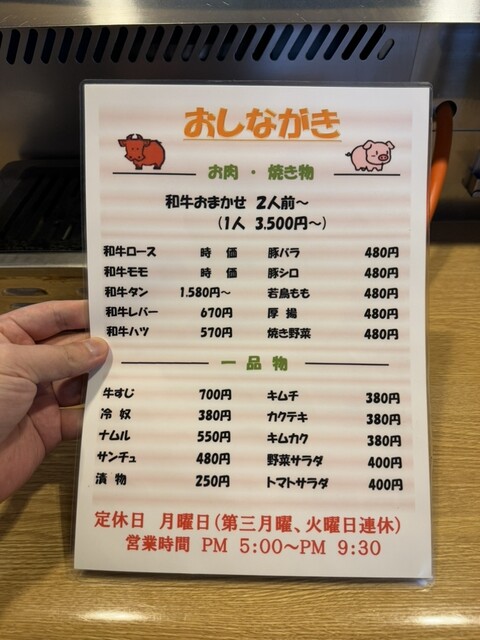 おしながき
お肉・焼き物
和牛おまかせ 2人前～
(1人 3,500円～)
和牛ロース 時 価 豚バラ 480円
和牛モモ 時 価 豚シロ 480円
和牛タン 1,580円～ 若鳥もも 480円
和牛レバー 670円 厚 揚 480円
和牛ハツ 570円 焼き野菜 480円
一品物
牛すじ 700円 キムチ 380円
冷 奴 380円 カクテキ 380円
ナムル 550円 キムカク 380円
サンチュ 480円 野菜サラダ 400円
漬 物 250円 トマトサラダ 400円
定休日 月曜日(第三月曜、火曜日連休)
営業時間 PM 5:00～PM 9:30